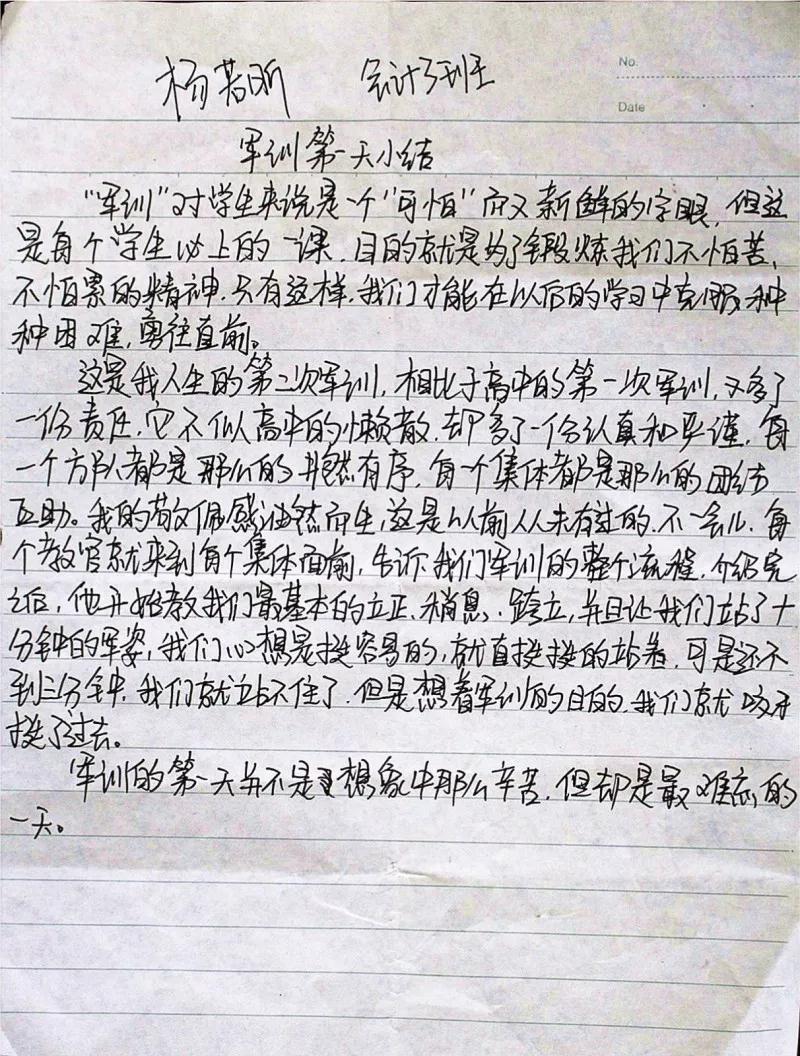 No.
Date
杨若昕 会计3班
军训第一天小结
“军训”对学生来说是一个“可怕”而又新鲜的字眼,但这
是每个学生必上的一课.目的就是为了锻炼我们不怕苦、
不怕累的精神.只有这样,我们才能在以后的学习中克服种
种困难,勇往直前。
这是我人生的第二次军训,相比于高中的第一次军训,又多了
一份责任.它不似高中的懒散.却多了一份认真和严谨,每
一个方队都是那么的井然有序,每一个集体都是那么的团结
互助。我的敬佩感油然而生,这是以前从未有过的.不一会儿.每
个教官就来到每个集体面前,告诉我们军训的整个流程.介绍完
之后,他开始教我们最基本的立正、稍息、跨立,并且让我们站了十
分钟的军姿,我们心想是挺容易的,就直挺挺的站着.可是还不
到三分钟,我们就站不住了.但是想着军训的目的.我们就咬牙
挺了过去。
军训的第一天并不是想象中那么辛苦.但却是最难忘的
一天。